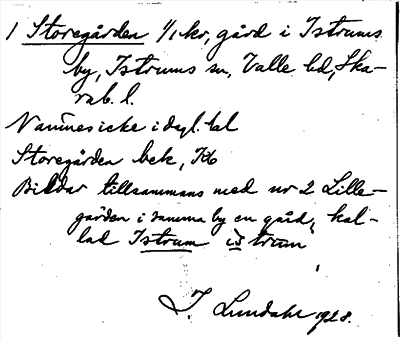 1 Storegården 1/1 kr, gård i Istrums
by, Istrums sn, Valle hd, Ska-
rab. l.
Namnes icke i dagl. tal
Storegården bek, Kb
Bildar tillsammans med nr 2 Lille-
gården i samma by en gård, kal-
lad Istrum istrum
J. Lundahl 1928.